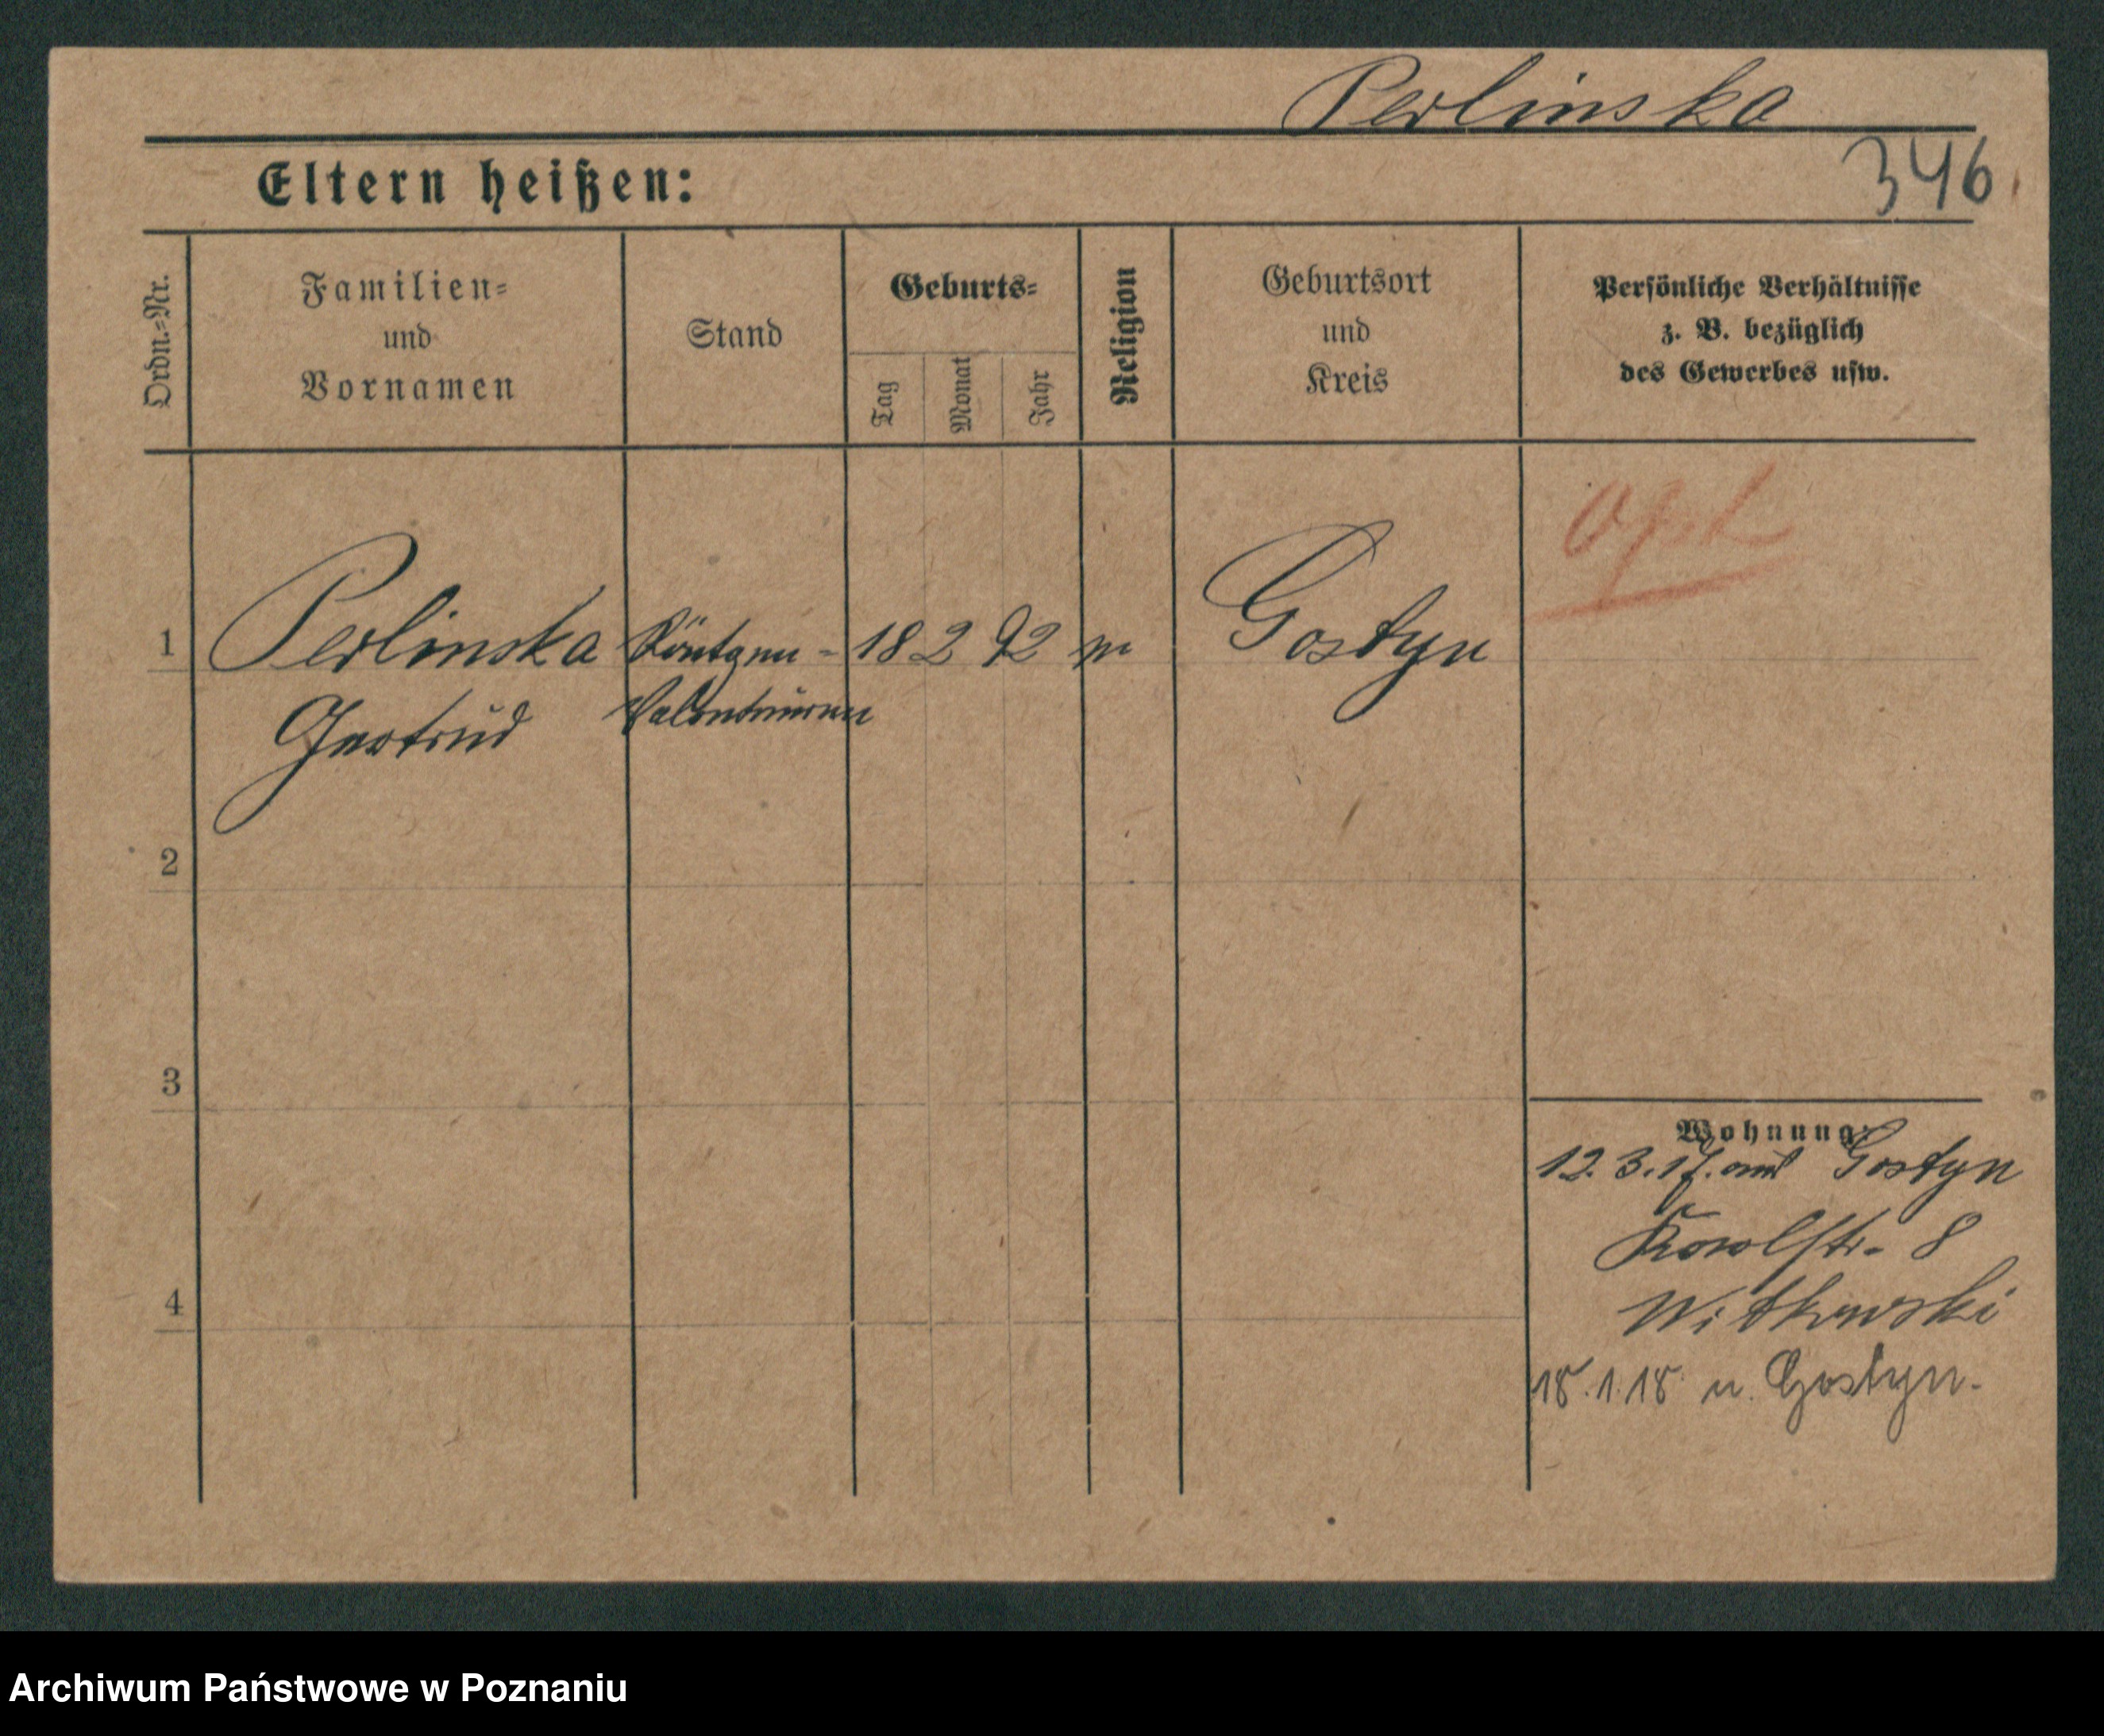 Perlinska
346
Eltern heißen:
Ordn.-Nr.
Familien-
und
Vornamen
Stand
Geburts-
Tag
Monat
Jahr
Religion
Geburtsort
und
Kreis
Persönliche Verhältnisse
z. B. bezüglich
des Gewerbes usw.
1
Perlinska Röntgen- 18 2 92 Gostyn
Gertrud
2
3
4
Wohnung:
12. 3. 17. Gostyn
8
Witkowski
18.1.18 n. Gostyn.
Archiwum Państwowe w Poznaniu